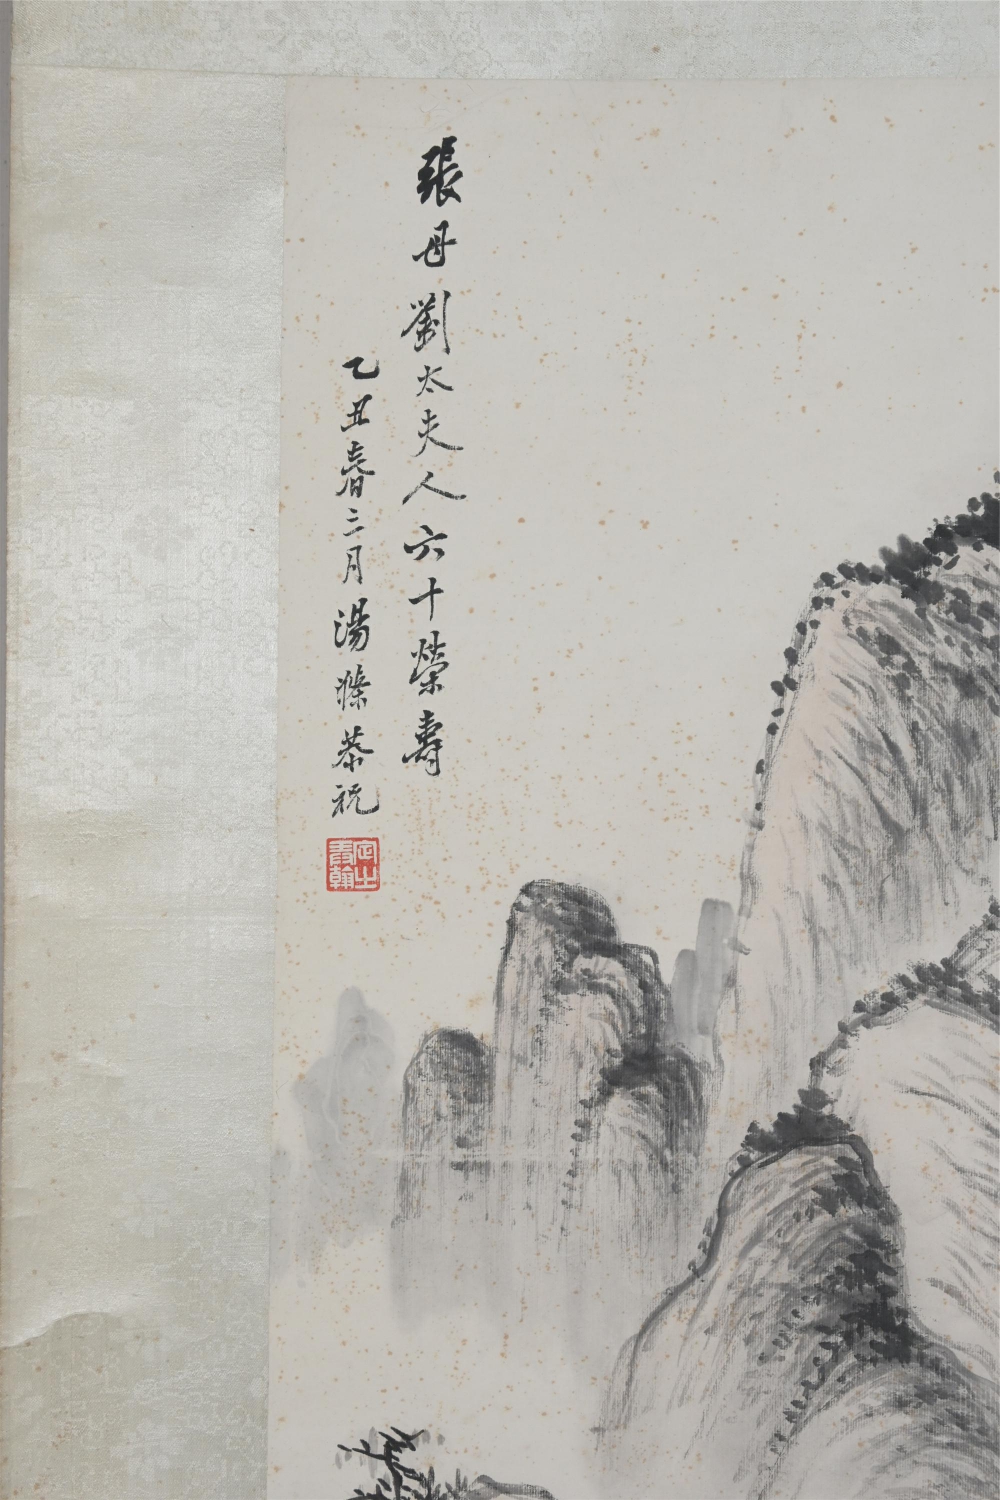 張母劉太夫人六十榮壽
乙丑春三月湯滌恭祝
定之書翰